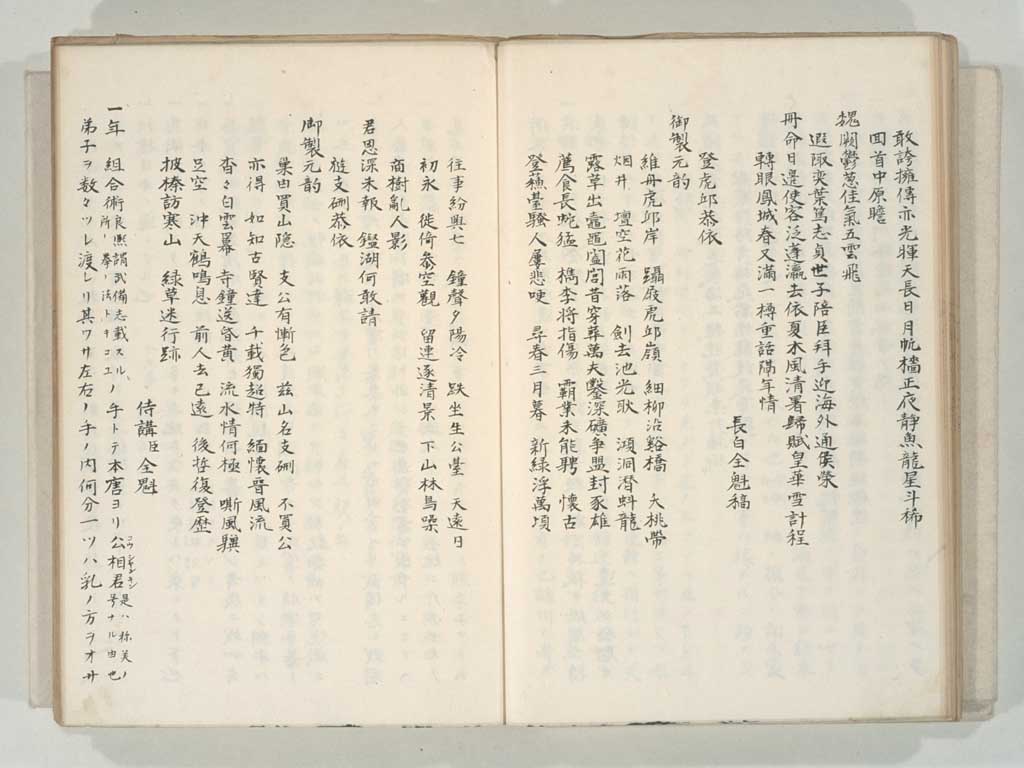 敢誇擁傳亦光暉天長日月帆檣正夜静魚龍星斗稀
回首中原瞻
魏闕鬱葱佳氣五雲飛
遐陬奕葉篤志貞世子陪臣拜手迎海外通侯榮
冊命日邊使客泛蓬瀛去依夏木風清署歸賦皇華雪計程
轉眼鳳城春又滿一樽重話隔年情
長白全魁稿
登虎邱恭依
御製元韵
維舟虎邱岸 躡屐虎邱嶺 細柳沿谿橋 夭桃帶
烟井 壇空花雨落 劍去池光耿 澒洞潛蚪龍
露草出鼃黽闔閭昔穿葬萬夫鑿深礦爭盟封豕雄
薦食長蛇猛 檇李將指傷 霸業未能騁 懷古
登蘓臺騷人屢悲哽 尋春三月暮 新緑浮萬頃
往事紛與七 鐘聲夕陽冷 趺坐生公臺 天遠日
初永 徙倚叅空觀 留連逐清景 下山林鳥噪
商樹亂人影
君恩深未報 鑑湖何敢請
遊支硎恭依
御製元韵
巢由買山隱 支公有慚色 茲山名支硎 不買公
亦得 如知古賢達 千載獨超特 緬懷晉風流
杳々白雲冪 寺鐘送昏黄 流水情何極 嘶風驥
足空 沖天鶴鳴息 前人去已遠 後哲復登歷
披榛訪寒山 緑草迷行跡
侍講臣全魁
一年 組合術良煕謂武備志載スル、所ノ拳ノ法トキコユノ手トテ本唐ヨリ公相君コウシヤンキン是ハ称美ノ号ナル由也
弟子ヲ数々ツレ渡レリ其ワサ左右ノ手ノ内何分一ツハ乳ノ方ヲオサ